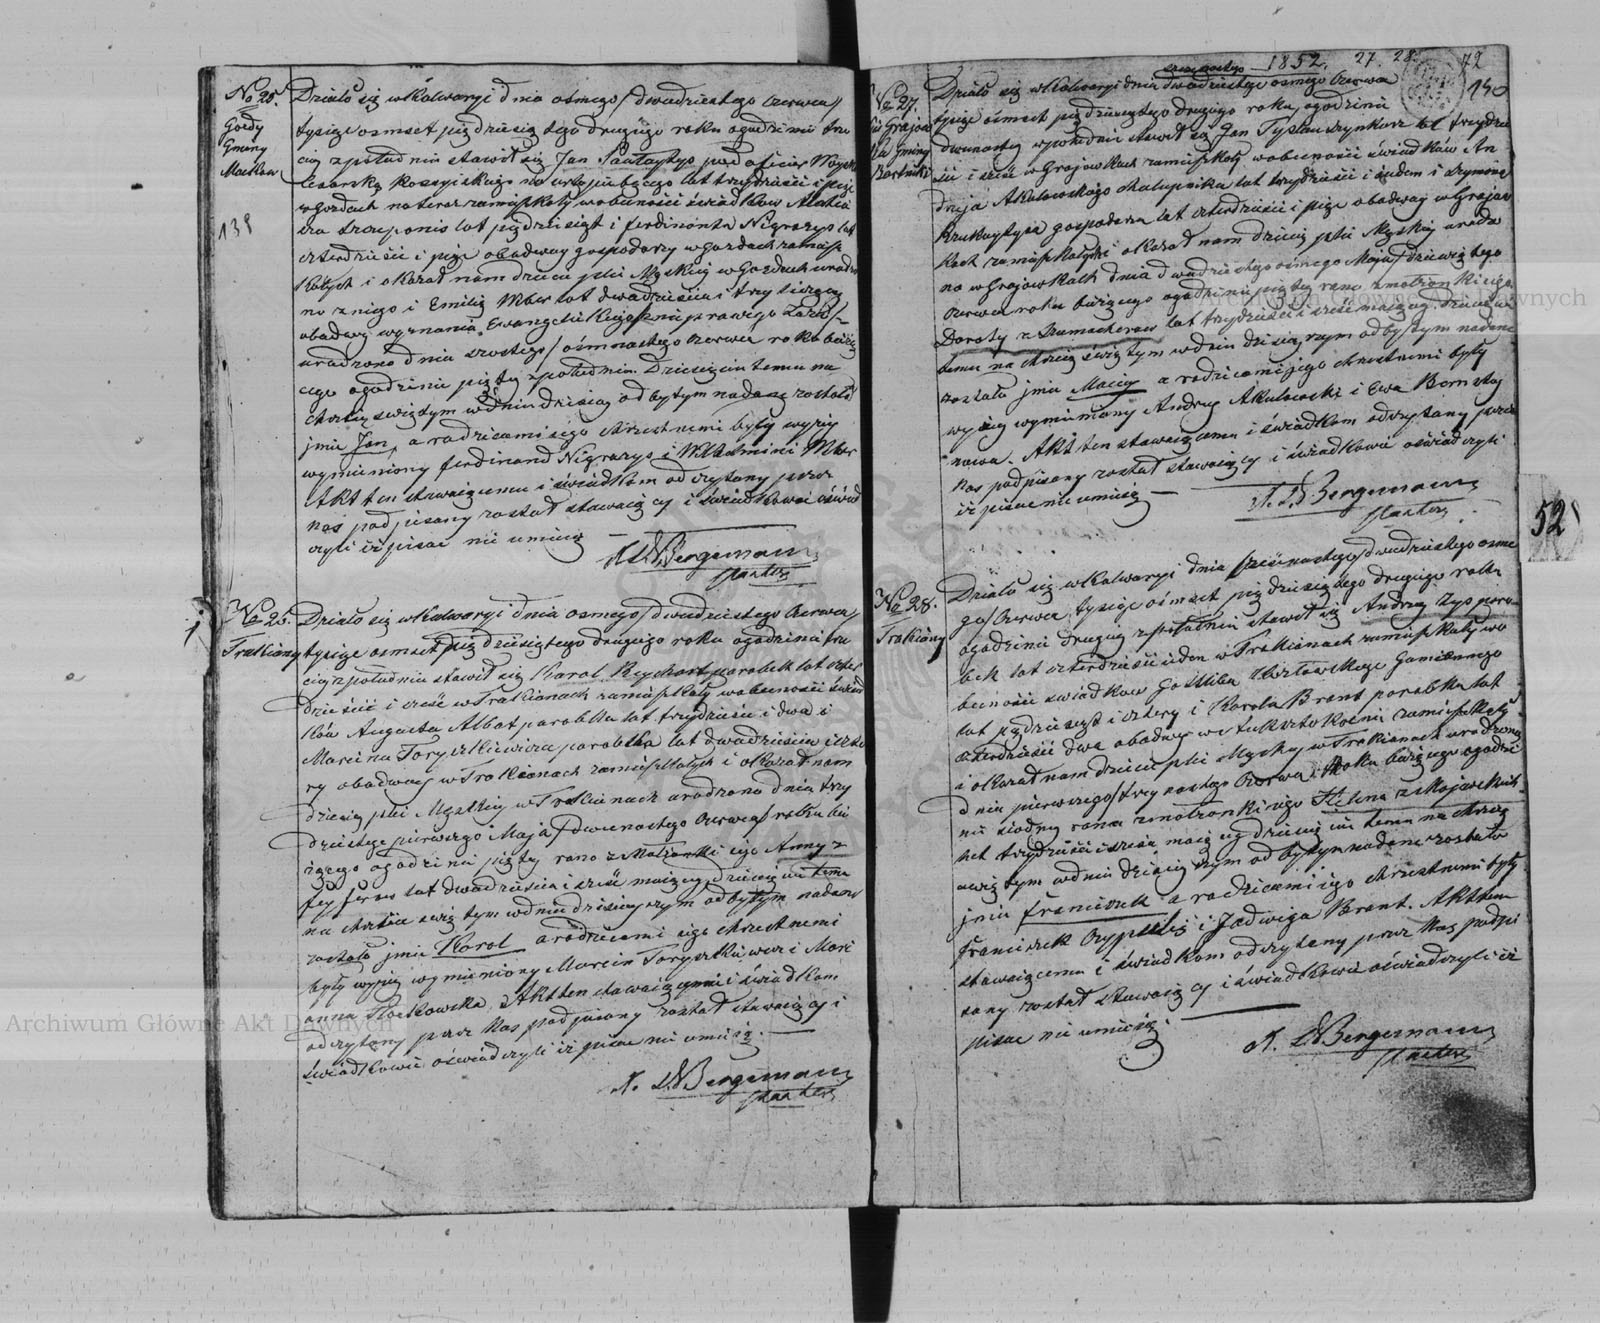 No 25.
Gozdy
Gminy
138
Działo się w Kalwaryi dnia ósmego/dwudziestego Czerwca/
tysiąc ośmset pięćdziesiątego drugiego roku o godzinie trze
ciej z południa stawił się Jan
lat trzydzieści i pięć
w Gozdach na teraz zamieszkały w obecności świadków
lat pięćdziesiąt i Ferdinanta Nigrazys lat
czterdzieści i pięć obadway gospodarzy w Gozdach zamiesz
kałych i okazał nam dziecię płci Męskiej w Gozdach urodzo
no z niego i Emilij lat dwadzieścia i trzy
obadwy wyznania Ewangelickiego
urodzone dnia szóstego/ośmnastego Czerwca roku bieżą
cego o godzinie piątej z południa. Dziecięciu temu na
chrzcie świętym w dniu dzisiaj odbytym nadane zostało
jmie Jan, a rodzicami jego chrzestnemi byli wyżej
wymieniony Ferdinand Nigrazys i Wilhelmina
Akt ten stawającemu i świadkom odczytany przez
nas podpisany został stawający i świadkowie oświad
czyli iż pisać nie umieją —
Bergemann
Pastor
No 26.
Trakiany
Działo się w Kalwaryi dnia ósmego/dwudziestego Czerwca/
tysiąc ośmset pięćdziesiątego drugiego roku o godzinie trze
ciej z południa stawił się Karol Reychort parobek lat czter
dzieści i sześć w Trakianach zamieszkały w obecności świad
ków Augusta Albat parobka lat trzydzieści i dwa i
Marcina Toryszkiewicza parobka lat dwadzieścia i czte
ry obadway w Trakianach zamieszkałych i okazał nam
dziecię płci Męskiej w Trakianach urodzone dnia trzy
dziestego pierwszego Maja/dwunastego Czerwca/roku bie
żącego o godzinie piątej rano z Małżonki jego Anny z
lat dwadzieścia i sześć mającej dziecięciu temu
na chrzcie świętym w dniu dzisiejszym odbytym nadane
zostało jmie Karol a rodzicami jego chrzestnemi
byli wyżej wymieniony Marcin Toryszkiewicz i Mari
anna Akt ten stawającemu i świadkom
odczytany przez Nas podpisany został stawający i
świadkowie oświadczyli iż pisać nie umieją.
Bergemann
Pastor
1852. 27. 28. 72
140
No 27.
szesnastego
Działo się w Kalwaryi dnia dwudziestego ósmego Czerwca
tysiąc ośmset pięćdziesiątego drugiego roku, o godzinie
dwunastej w południe stawił się Jan szynkarz lat trzydzie
ści i sześć w Grajowkach zamieszkały w obecności świadków An
drzeja Akułowskiego chałupnika lat trzydzieści i siedem i Szymona
gospodarza lat czterdzieści i pięć obadway w Grajow
kach zamieszkałych i okazał nam dziecię płci Męskiej urodzo
no w Grajowkach dnia dwudziestego ósmego Maja/dziewiątego
Czerwca roku bieżącego o godzinie piątej rano z małżonki jego
Doroty z Szumacherow lat trzydzieści i sześć mającej dziecięciu
temu na chrzcie świętym w dniu dzisiejszym odbytym nadane
zostało jmie Maciej a rodzicami jego chrzestnemi byli
wyżej wymieniony Andrzej Akułowski i Ewa
Akt ten stawającemu i świadkom odczytany przez
nas podpisany został stawający i świadkowie oświadczyli
iż pisać nie umieją —
Bergemann
Pastor
52
No 28.
Trakiany
Działo się w Kalwaryi dnia szesnastego/dwudziestego ósme
go/Czerwca tysiąc ośmset pięćdziesiątego drugiego roku
o godzinie drugiej z południa stawił się Andrzej Zys paro
bek lat czterdzieści i eden w Trakianach zamieszkały w o
becności świadkow Gottliba
lat pięćdziesiąt i cztery i Karola Brant parobka lat
czterdzieści dwa obadway w zamieszkałych
i okazał nam dziecię płci Męskiej w Trakianach urodzone
dnia pierwszego/trzynastego Czerwca roku bieżącego o godzi
nie siódmej rano z małżonki jego Helena
lat trzydzieści i sześć mającej dziecięciu temu na chrzcie
świętym w dniu dzisiejszym odbytym nadane zostało
jmie Franciszek a rodzicami jego chrzestnemi byli
Franciszek i Jadwiga Brant. Akt ten
stawającemu i świadkom odczytany przez Nas podpi
sany został stawający i świadkowie oświadczyli iż
pisać nie umieją.
Bergemann
Pastor
Archiwum Główne Akt Dawnych
Archiwum Główne Akt Dawnych